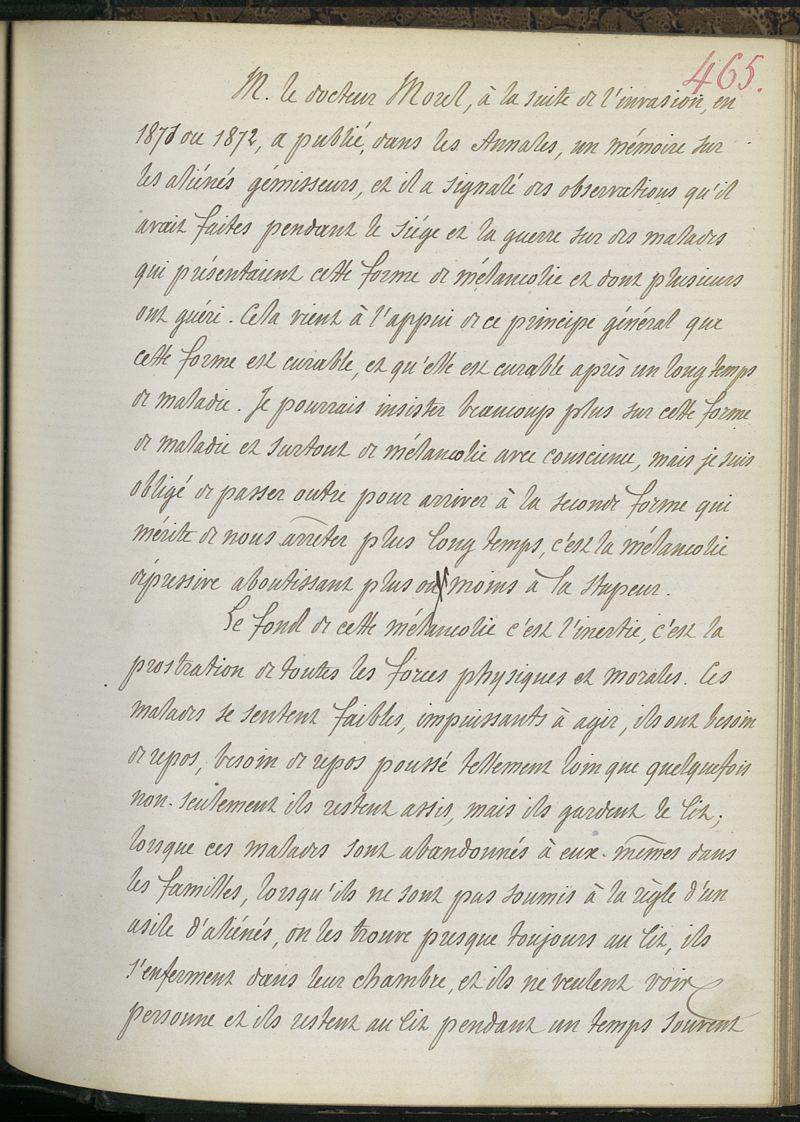 465.
M. le docteur Morel, à la suite de l'invasion, en
1871 ou 1872, a publié, dans les Annales, un mémoire sur
les aliénés gémisseurs, et il a signalé des observations qu'il
avait faites pendant le siége et la guerre sur des malades
qui présentaient cette forme de mélancolie et dont plusieurs
ont guéri. Cela vient à l'appui de ce principe général que
cette forme est curable, et qu'elle est curable après un long temps
de maladie. Je pourrais insister beaucoup plus sur cette forme
de maladie et surtout de mélancolie avec conscience, mais je suis
obligé de passer outre pour arriver à la seconde forme qui
mérite de nous arrêter plus long temps, c'est la mélancolie
dépressive aboutissant plus ou moins à la stupeur.
Le fond de cette mélancolie c'est l'inertie, c'est la
prostration de toutes les forces physiques et morales. Ces
malades se sentent faibles, impuissants à agir, ils ont besoin
de repos, besoin de repos poussé tellement loin que quelquefois
non-seulement ils restent assis, mais ils gardent le lit;
lorsque ces malades sont abandonnés à eux-mêmes dans
les familles, lorsqu'ils ne sont pas soumis à la règle d'un
asile d'aliénés, on les trouve presque toujours au lit, ils
s'enferment dans leur chambre, et ils ne veulent voir
personne et ils restent au lit pendant un temps souvent